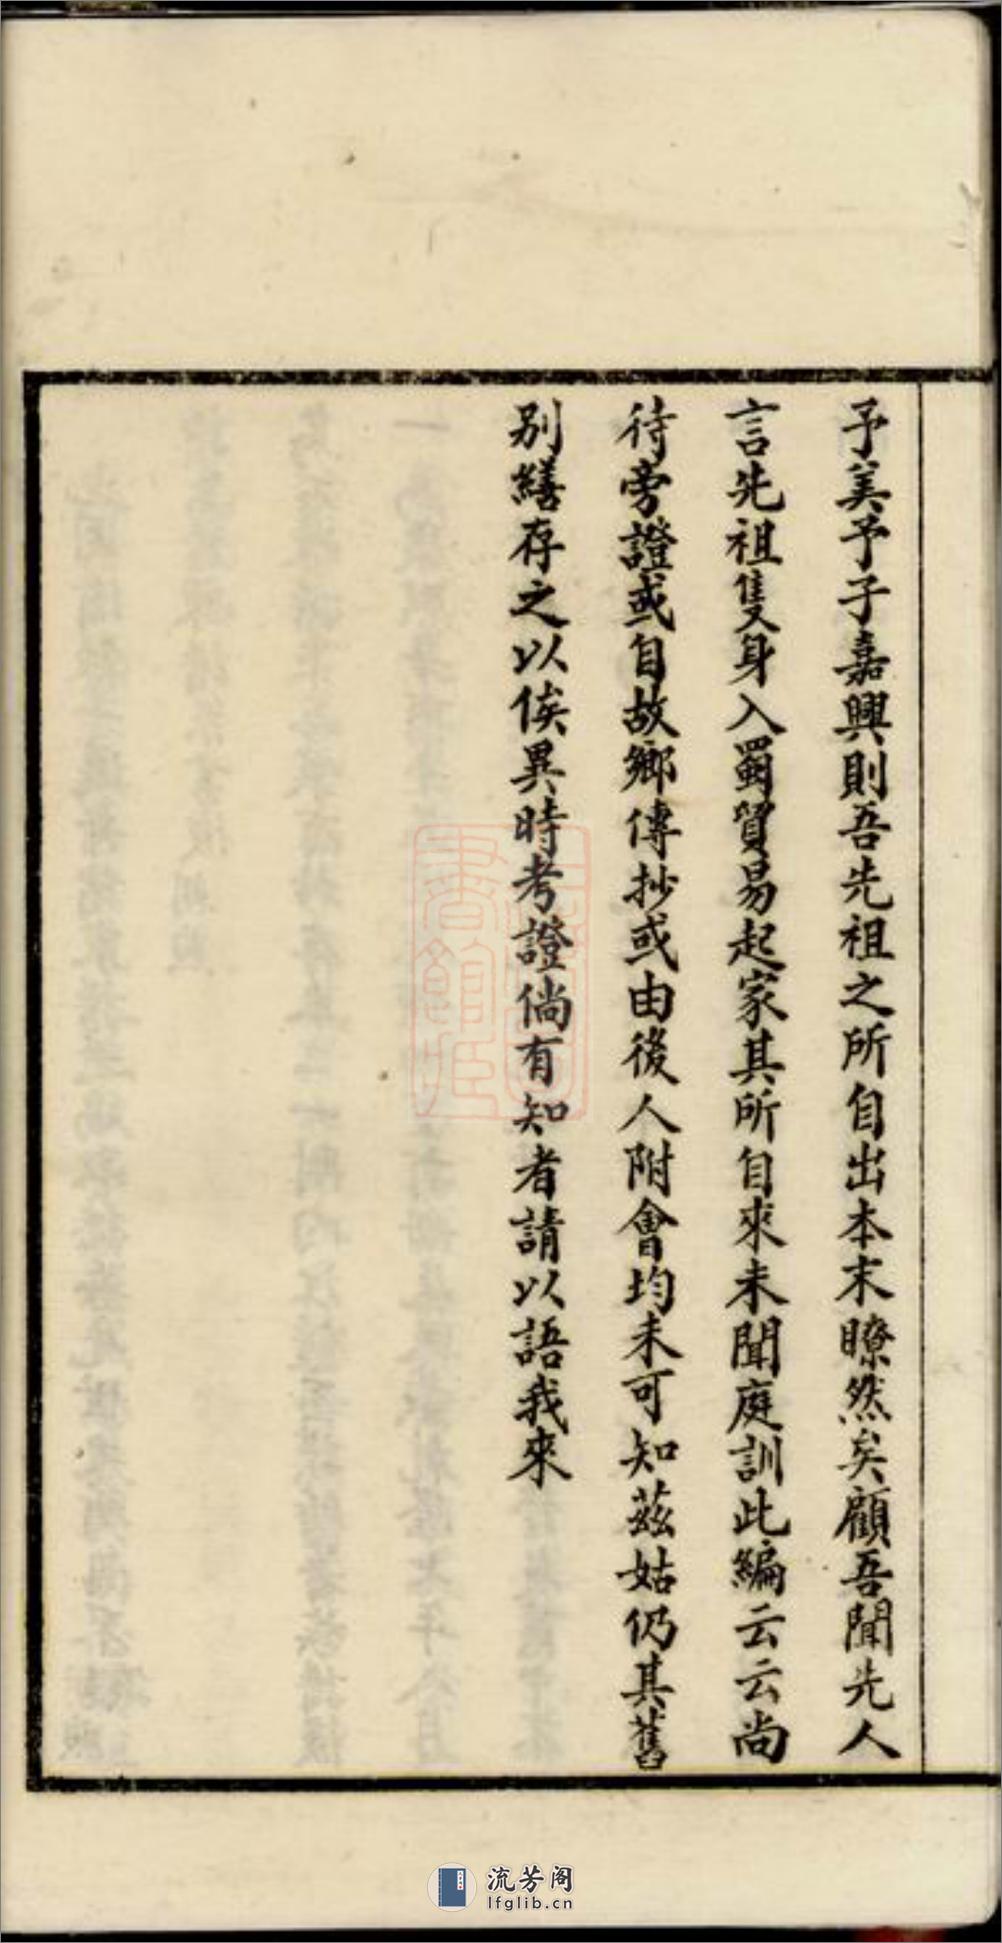 予美予子嘉興則吾先祖之所自出本末瞭然矣顧吾聞先人
言先祖隻身入蜀貿易起家其所自來未聞庭訓此編云云尚
待旁證或自故鄉傳抄或由後人附會均未可知茲姑仍其舊
別繕存之以俟異時考證倘有知者請以語我來
流芳阁
lfglib.cn